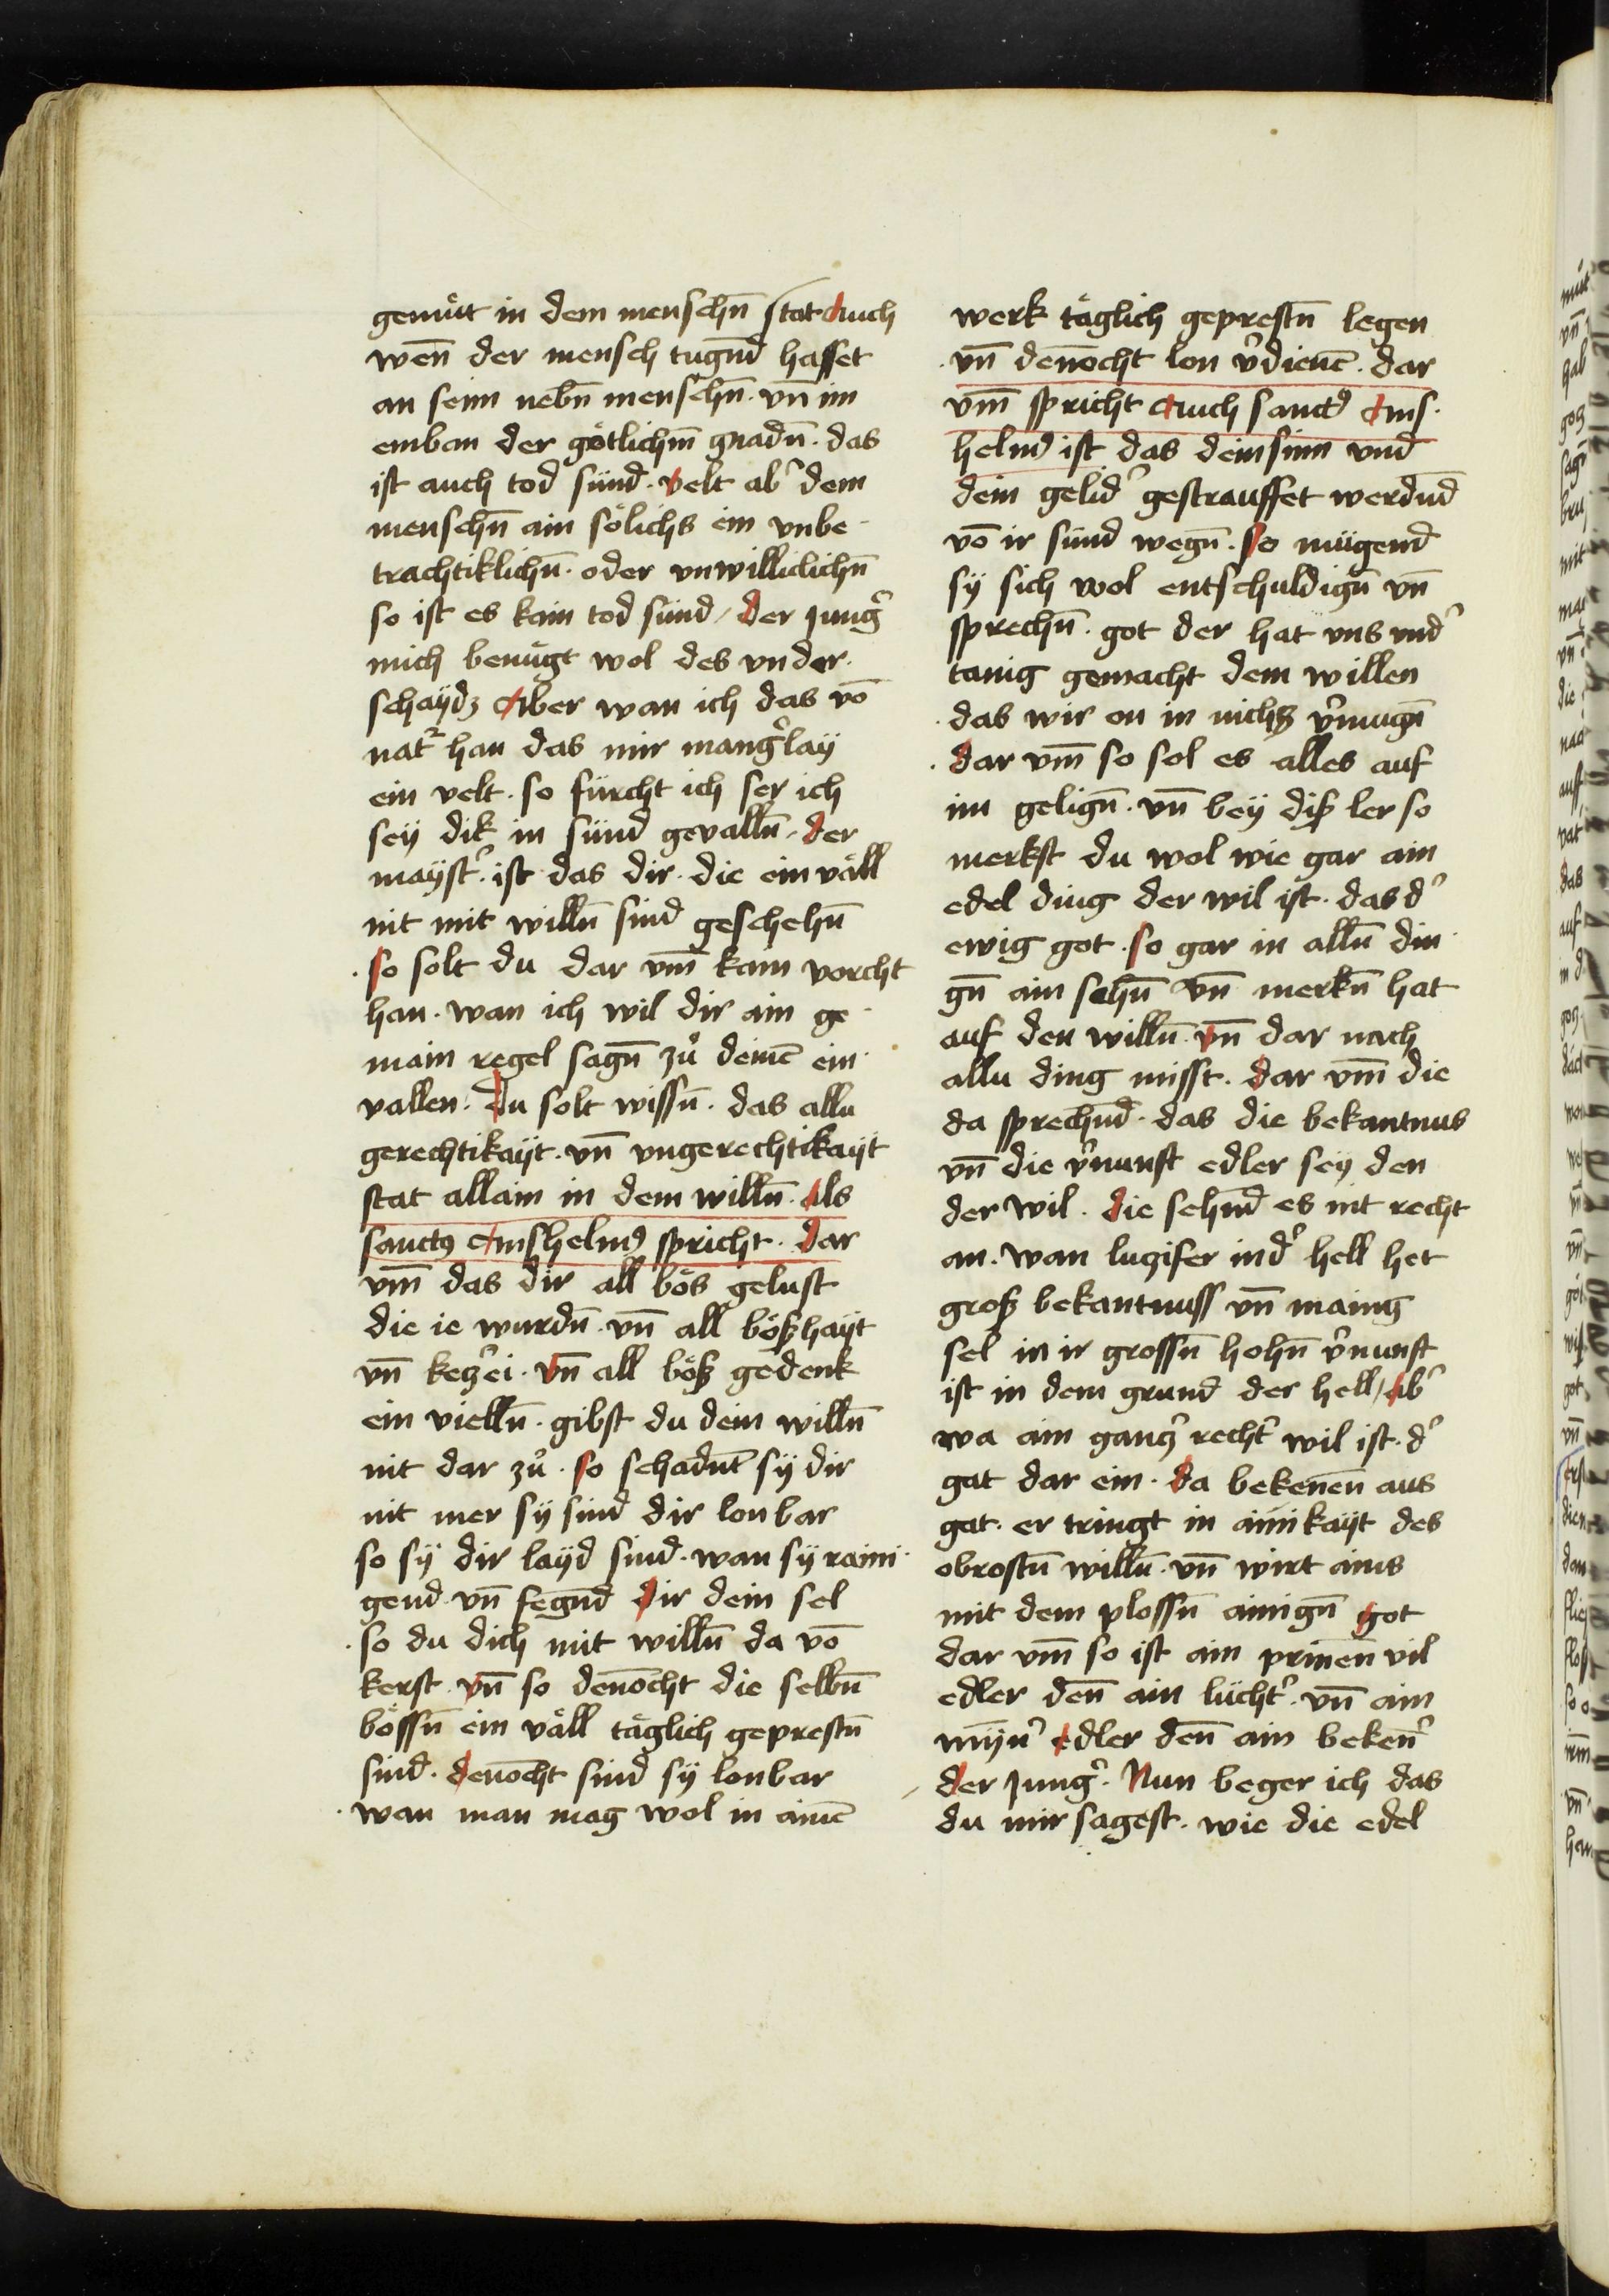 gemüt in dem menschn̄ stat Auch
wen̄ der mensch tugn̄d hasset
an seim nebn̄ menschn̄. vn̄ im
emban der götlichn̄ gnadn̄. das
ist auch tod sünd. velt ab̾ dem
menschn̄ ain sölichs ein vnbe
trachtiklichn̄. oder vnwilliclichn̄
so ist es kain tod sünd / der jung̾
mich benügt wol des vnder
schaydz Aber wan ich das vō
nat̾ han das mir mang̾lay
ein velt. so fürcht ich ser ich
sey dik in sünd gevalln̄. der
mayst̾. ist das dir. die ein väll
nit mit willn̄ sind geschehn̄
so solt du dar vm̄ kam vorcht
han. wan ich wil dir ain ge
main regel sagn̄ zů deinē ein
vallen. du solt wissn̄. das allu
gerechtikayt. vn̄ vngerechtikayt
stat allain in dem willn̄. Als
sanctꝰ Anshelmꝰ spricht. dar
vm̄ das dir all bös gelust
die ie wurdn̄. vn̄ all bößhayt
vn̄ ketz̾ei. vn̄ all böß gedenk
ein vielln̄. gibst du dein willn̄
nit dar zů. so schadn̄t sy dir
nit mer sy sind dir lonbar
so sy dir layd sind. wan sy raini
gend vn̄ fegn̄d dir dein sel
so du dich mit willn̄ da vō
kerst. vn̄ so den̄ocht die selbn̄
bössn̄ ein väll täglich geprestn̄
sind. den̄ocht sind sy lonbar
wan man mag wol in ainē
werk täglich geprestn̄ legen
vn̄ den̄ocht lon v̾dienē. dar
vm̄ spricht Auch sanctꝰ Ans
helmꝰ ist das dein sinn vnd
dein gelid̾ gestrauffet werdn̄d
vō ir sünd wegn̄. So mügend
sy sich wol entschuldign̄ vn̄
sprechn̄. got der hat vns vnd̾
tanig gemacht dem willen
das wir on in nichtz v̾mugn̄
dar vm̄ so sol es alles auf
im gelign̄. vn̄ bey diß ler so
merkst du wol wie gar ain
edel ding der wil ist. das d̾
ewig got. so gar in alln̄ din
gn̄ ain sehn̄ vn̄ merkn̄ hat
auf den willn̄. vn̄ dar nach
allu ding misst. dar vm̄ die
da sprechn̄d. das die bekantnus
vn̄ die v̾nunft edler sey den
der wil. die sehn̄d es nit recht
an. wan luzifer in d̾ hell het
groß bekantnuss vn̄ maing
sel in ir grossn̄ hohn̄ v̾nunft
ist in dem grund der hell / Ab̾
wa ain gantz̾ recht̾ wil ist. d̾
gat dar ein. da beken̄en aus
gat. er tringt in ainikayt des
obrostn̄ willn̄. vn̄ wirt ains
mit dem plossn̄ ainign̄ got
dar vm̄ so ist ain prin̄en vil
edler den̄ ain lücht̾. vn̄ ain
myn̄̾ edler den̄ ain beken̄̾
der jung̾. Nun beger ich das
du mir sagest. wie die edel